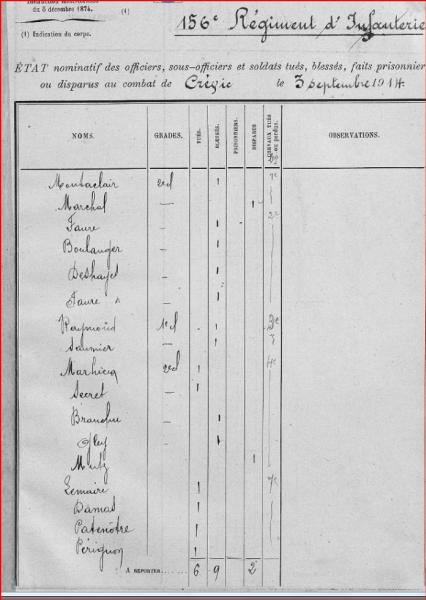 du 5 décembre 1874.
(1)
156e Régiment d'Infanterie
(1) Indication du corps.
ÉTAT nominatif des officiers, sous-officiers et soldats tués, blessés, faits prisonnier
ou disparus au combat de Crévic le 3 septembre 1914
NOMS. GRADES. TUÉS. BLESSÉS. PRISONNIERS. DISPARUS. CHEVAUX TUÉS ou perdus. OBSERVATIONS.
Montaclair 2cl 1
Marchal — 1
Faure — 1 2e
Boulanger — 1
Deshayes — 1
Faure — 1
Raymond 1cl 1 3e
Saunier — 1
Marhicq 2cl 1 4e
Secret — 1
Branchu 1
Gley 1
Mutz 1
Lemaire 1
Damas 1
Patenôtre 1
Pérignon 1
A REPORTER...... 6 9 2